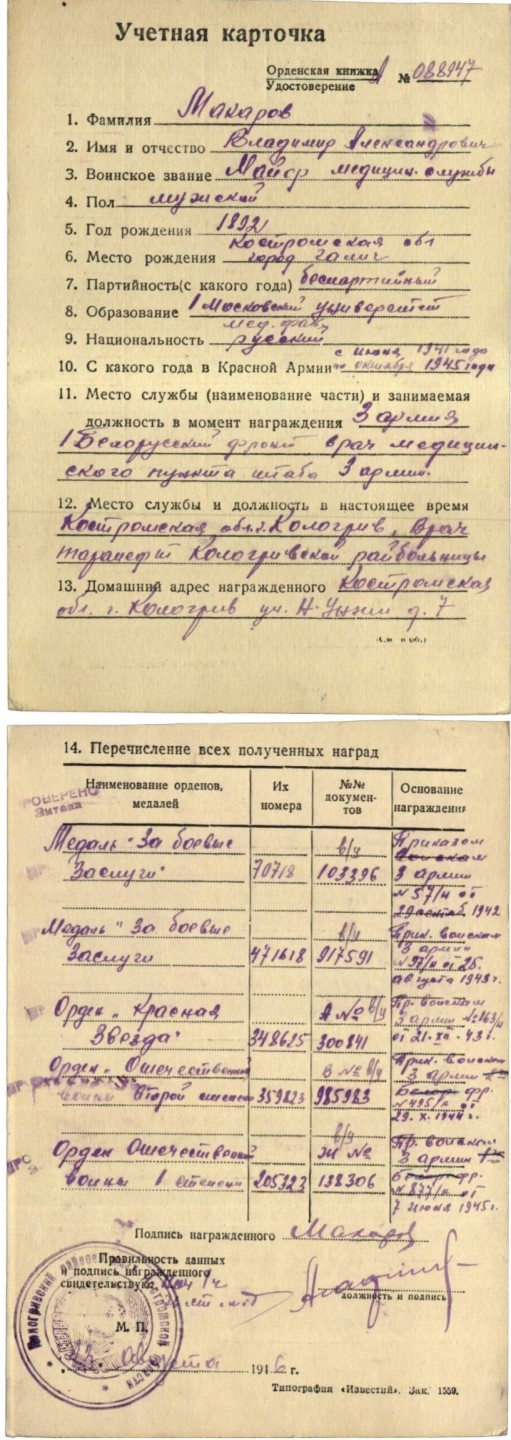 Учетная карточка
Орденская книжка А № 088947
Удостоверение
1. Фамилия Макаров
2. Имя и отчество Владимир Александрович
3. Воинское звание Майор медицин. службы
4. Пол мужской
5. Год рождения 1892
Костромская обл
6. Место рождения город Галич
7. Партийность(с какого года) беспартийный
8. Образование 1 Московский университет
мед. фак.
9. Национальность русский
с июня 1941 года
10. С какого года в Красной Армии по октября 1945 года
11. Место службы (наименование части) и занимаемая
должность в момент награждения 3 армия
1 Белорусский фронт врач медицин-
ского пункта штаба 3 армии.
12. Место службы и должность в настоящее время
Костромская обл. г. Кологрив, Врач
Кологривской райбольницы
13. Домашний адрес награжденного Костромская
обл. г. Кологрив ул. Н-Унжи д. 7
14. Перечисление всех полученных наград
ПРОВЕРЕНО
Наименование орденов, медалей
Их номера
№№ документов
Основание награждения
Медаль "За боевые
Заслуги"
70718
в/у
103396
Приказом
войскам
3 армии
№ 57/н от
1942
Медаль "За боевые
Заслуги
471618
в/у
917591
Прик. войскам
3 армии
№ 97/н от 25.
августа 1943 г.
Орден "Красная
Звезда"
348625
А № в/у
300841
Пр. войскам
3 армии № 163/н
от 21. XII - 43 г.
Орден "Отечественной
войны Второй степени
359823
В № в/у
985983
Прик. войскам
3 армии
Белор. фр.
№ 495/н от
29. X. 1944 г.
Орден Отечественной
войны 1 степени
205323
в/у
Ж №
138306
Пр. войскам
3 армии
фр.
№ 877/н от
7 июня 1945 г.
Подпись награжденного Макаров
Правильность данных
и подпись награжденного
свидетельствую
должность и подпись
М. П.
22. августа 1946 г.
Типография «Известий». Зак. 1559.